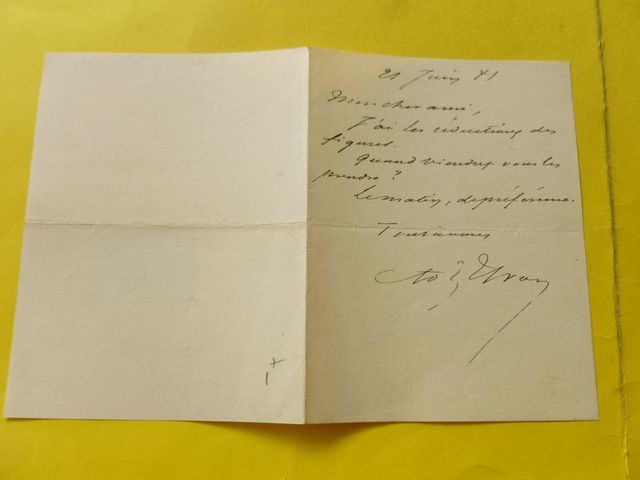 21 Juin 81
Mon cher ami,
J'ai les réductions des
figures.
Quand viendrez vous les
prendre ?
Le matin, de préférence.
Tout à vous
Ad. Yvon
1+